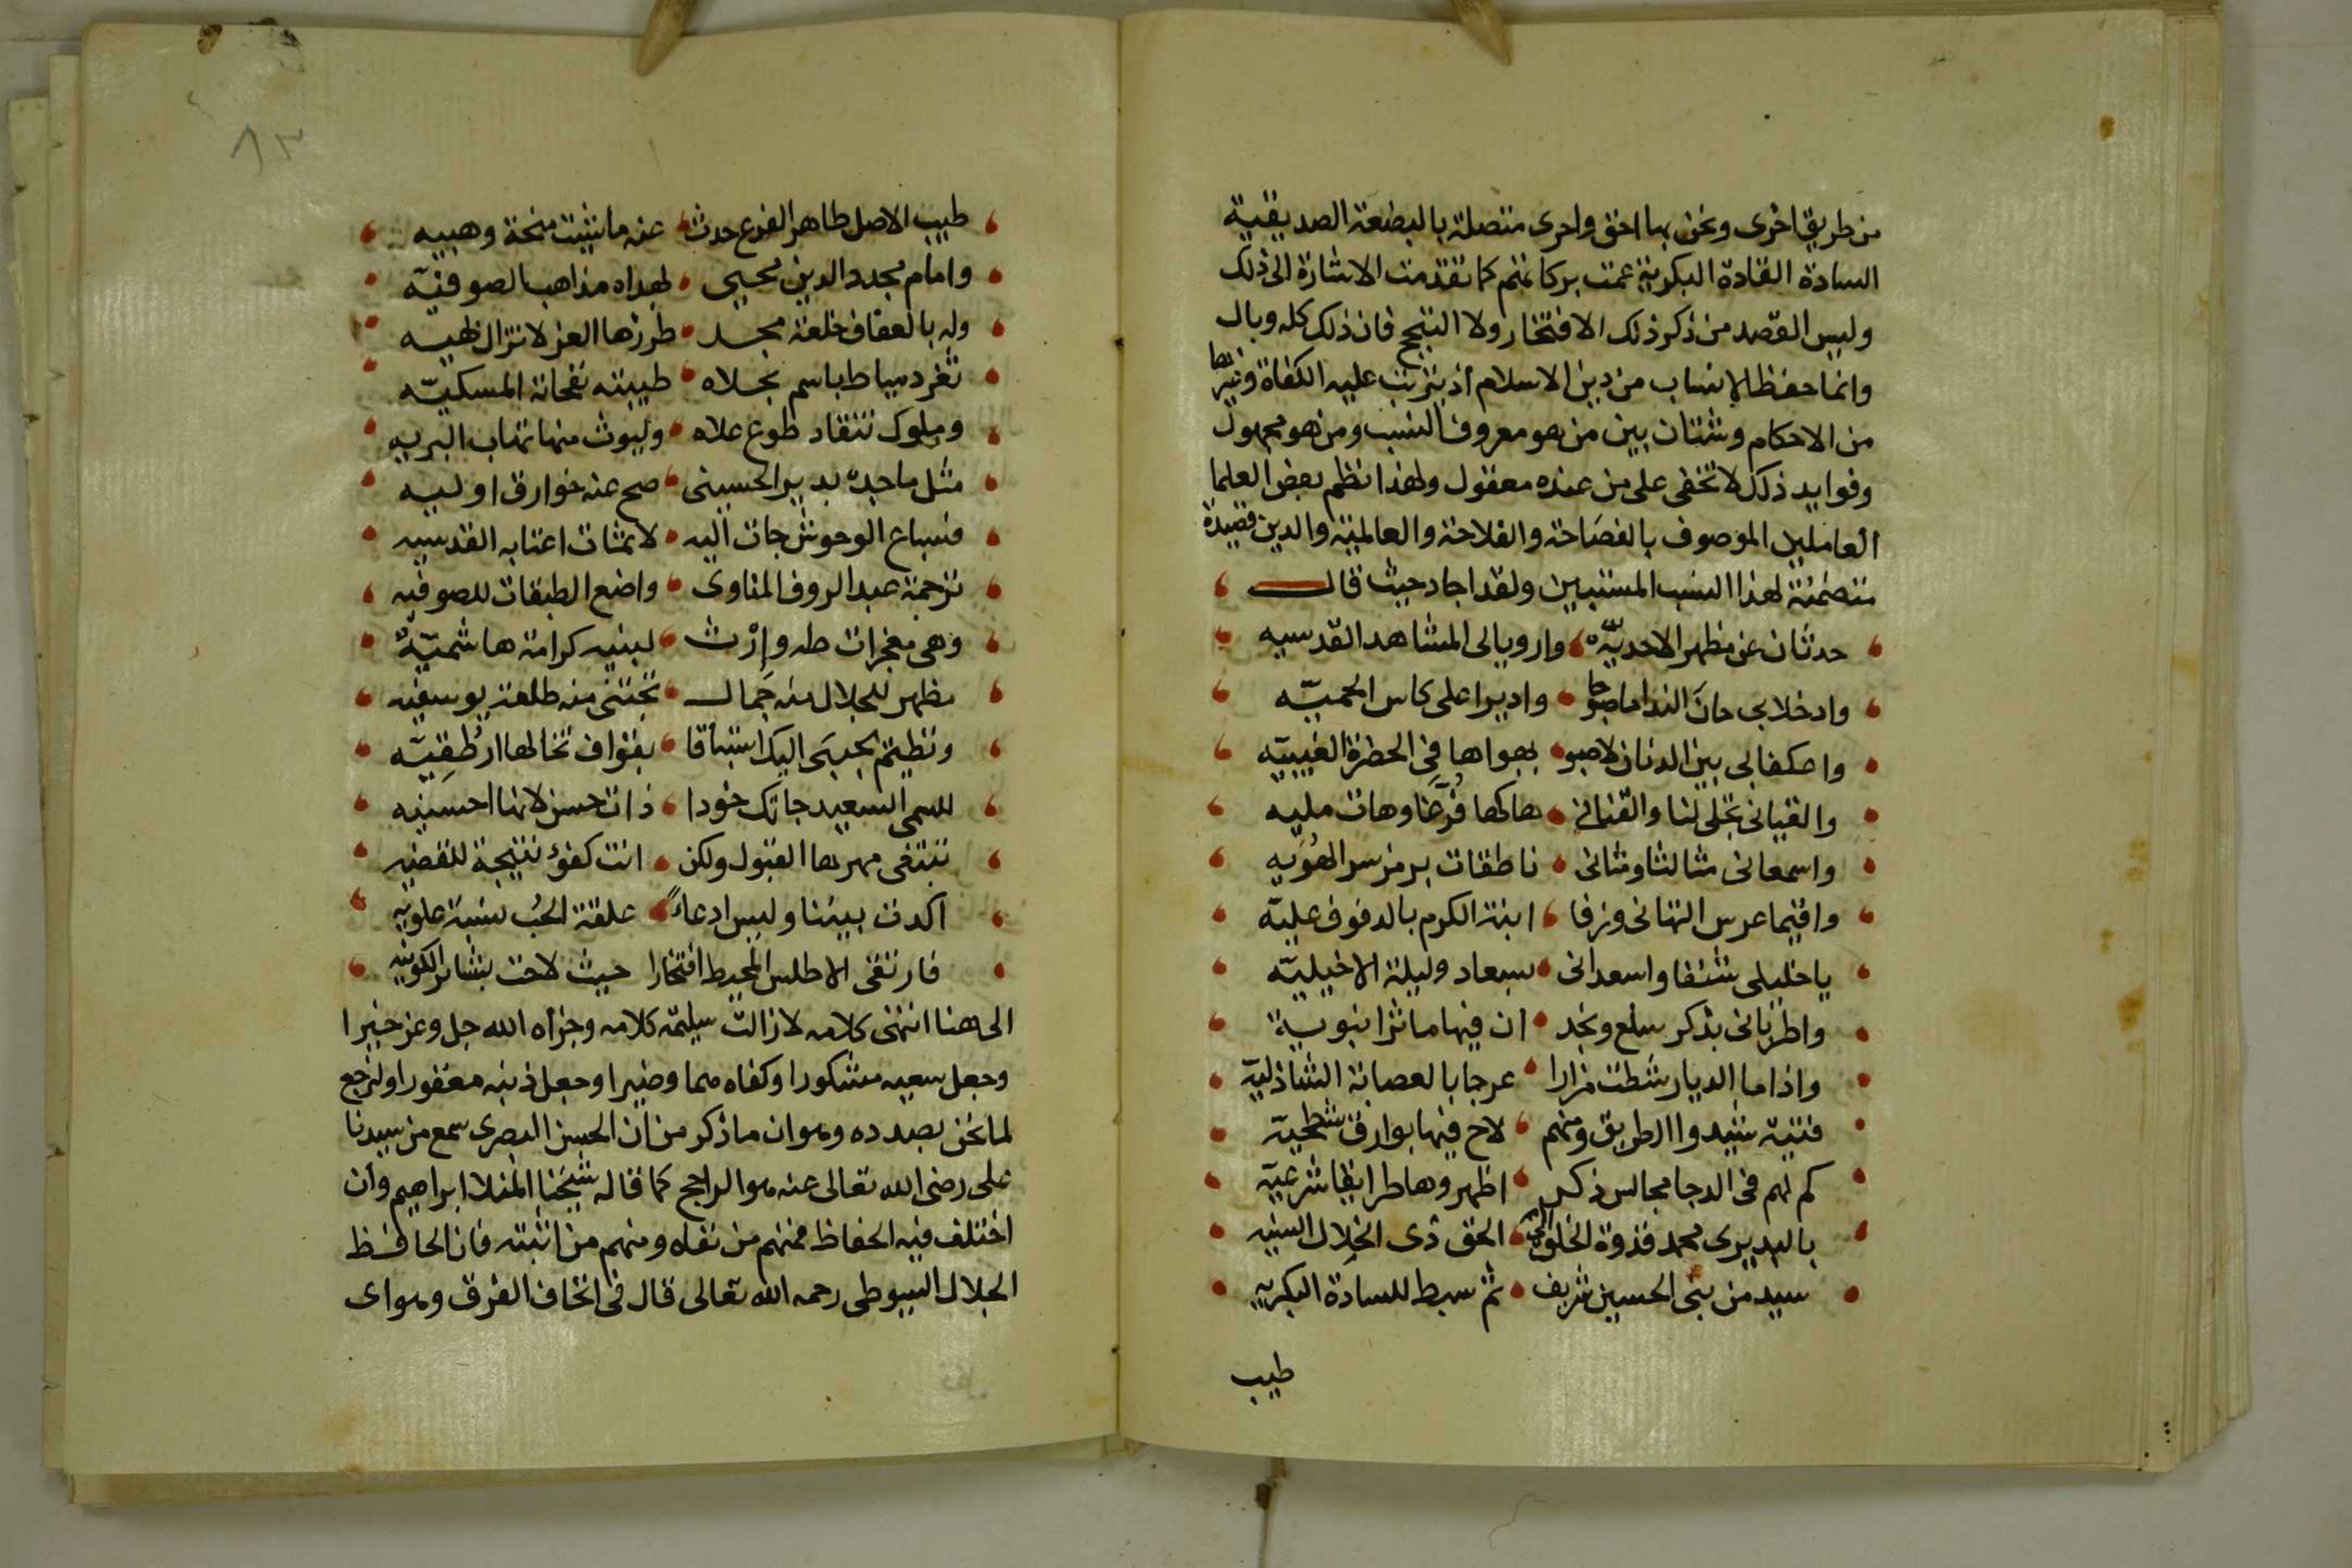 من طريق اخرى ونحن بها احق واحرى متصلة بالبضعة الصديقية
السادة القادة البكرية عمت بركاتهم كما تقدمت الاشارة الى ذلك
وليس القصد من ذكر ذلك الافتخار ولا التبجح فان ذلك كله وبال
وانما حفظ الانساب من دين الاسلام اذ يترتب عليه الكفاة وغيرها
من الاحكام وشتان بين من هو معروف النسب ومن هو مجهول
وفوايد ذلك لا تخفى على من عنده معقول ولهذا نظم بعض العلما
العاملين الموصوف بالفصاحة والفلاحة والعالمية والدين قصيدة
متضمنة لهذا النسب المستبين ولقد اجاد حيث قال
حدثان عن مظهر الاحديّه وارويا لى المشاهد القدسيه
وادخلا بى حان النداما جها واديرا على كاس الحميّه
واعكفا بى بين الدنان لاصبو بهواها فى الحظرة الغيبيّه
والقيانى تجلى لنا والقنانى هاكها قرغا وهات مليه
واسمعانى مثالثا ومثانى ناطقات برمز سر الهُوَيه
واقيما عرس التهانى وزفا ابنة الكرم بالدفوف عليّه
يا خليلى شنفا واسعدانى بسعاد وليلة الاخيليّه
واطربانى بذكر سلع ونجد ان فيها ماثرا نبوية
واذا ما الديار شطت مزارا عرجا بالعصابة الشاذليّة
فتية شيدوا الطريق ومنهم لاح فيها بوارق شطحية
كم لهم فى الدجا مجالس ذكر اظهروها طرايقا شرعيّة
بالبديرى محمد قدوة الخلق الى الحق ذى الخِلال السنيه
سيد من بنى الحسين شريف ثم سبط للسادة البكريه
طيب
٨٣
طيب الاصل طاهر الفرع حدث عنه ما شيت منحة وهبيه
وامام مجدد الدين محيى لهداه مذاهب الصوفيّه
وله بالعفاف خلعة مجد طرزها العز لا تزال بهيه
ثغر دمياط باسم بجلاه طيبته نفحاته المسكيّه
وملوك تنقاد طوع علاه وليوث منها تهاب البريه
مثل ما جده بدير الحسينى صح عنه خوارق اوليه
فسباع الوحوش جات اليه لانمثات اعتابه القدسيه
ترجمة عبد الروف المناوى واضع الطبقات للصوفيه
وهى معجزات طه وارث لبنيه كرامة هاشميّةٌ
مظهر للجلال منه جمال تجتنى منه طلعة يوسفيه
ونظيم يجرى اليك استباقا بقواف تخالها ارطقيّه
للسمى السعيد جاتك خودا ذات حسن لانها احسنيه
تبتغى مهرها القبول ولكن انت كفؤ نتيجة للقضيه
اكدت بيننا وليس ادعاءً علقة الحب نسبة علويه
فارتقى الاطلس المحيط افتخارا حيث لاحت بشائر الكونيه
الى هنا انتهى كلامه لا زالت سليمة كلامه وجزاه الله جل وعز خيرا
وجعل سعيه مشكورا وكفاه هما وضيرا وجعل ذنبه مغفورا ولنرجع
لما نحن بصدده وهو ان ما ذكر من ان الحسن البصرى سمع من سيدنا
على رضى الله تعالى عنه هو الراجح كما قاله شيخنا المنلا ابراهيم وان
اختلف فيه الحفاظ فمنهم من نفاه ومنهم من اثبته فان الحافظ
الجلال السيوطى رحمه الله تعالى قال فى اتحاف الفرق وهو اى